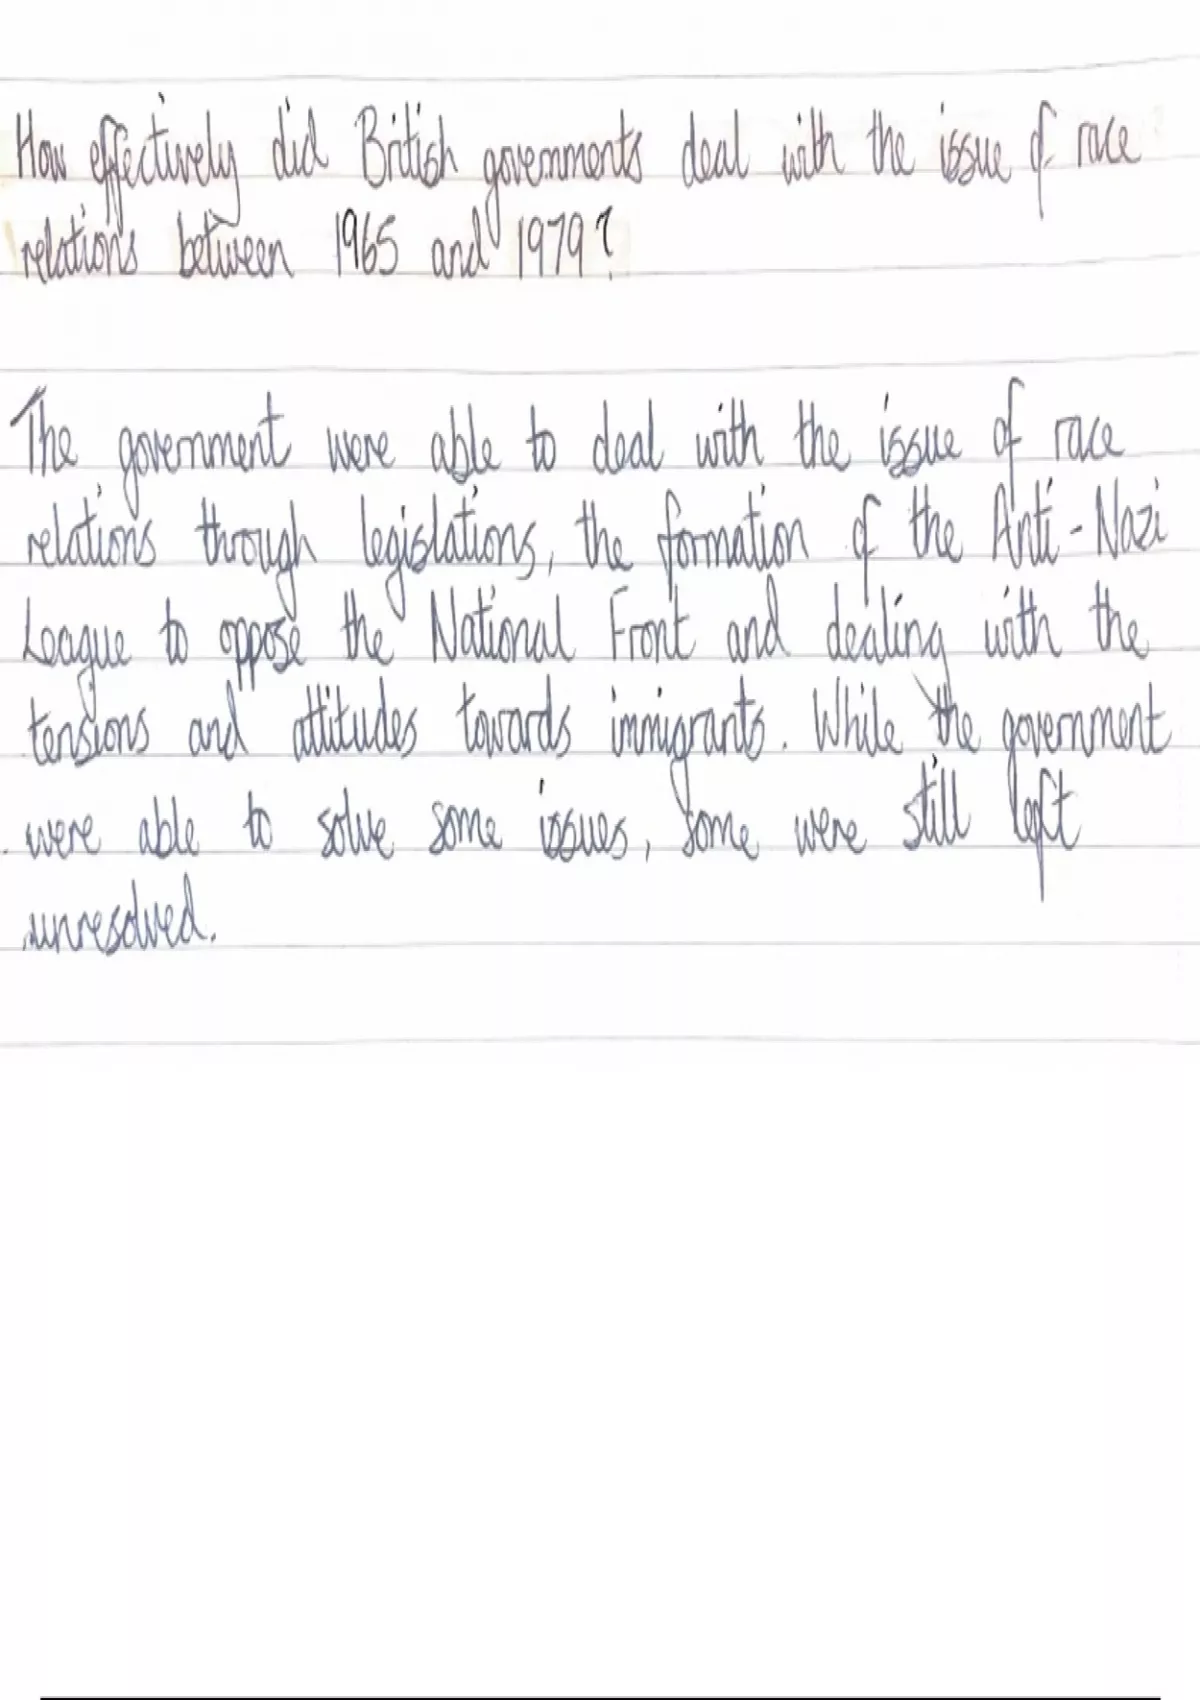 How effectively did British governments deal with the issue of race
relations between 1965 and 1979?
The government were able to deal with the issue of race
relations through legislations, the formation of the Anti-Nazi
League to oppose the National Front and dealing with the
tensions and attitudes towards immigrants. While the government
were able to solve some issues, some were still left
unresolved.